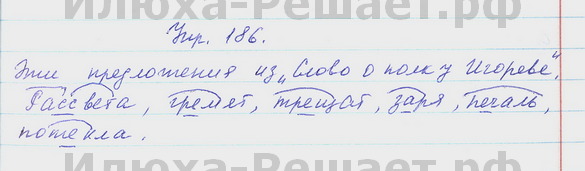 Илюха-Решает.рф
Упр. 186.
Эти предложения из „Слово о полку Игореве".
Рассвета, гремят, трещат, заря, печаль,
потекла.
Илюха-Решает.рф